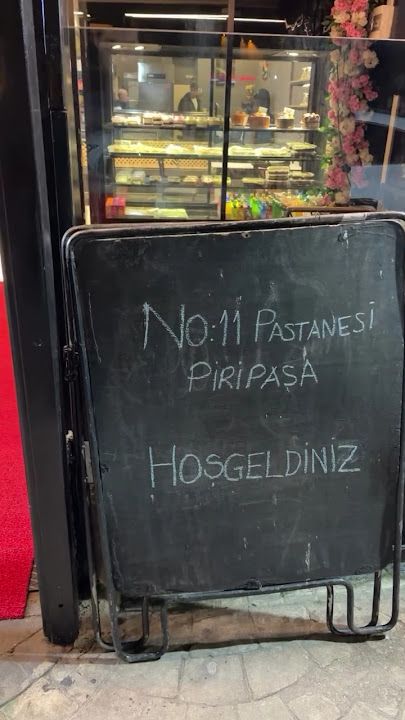 No:11 PASTANESİ
PİRİPAŞA
HOŞGELDİNİZ